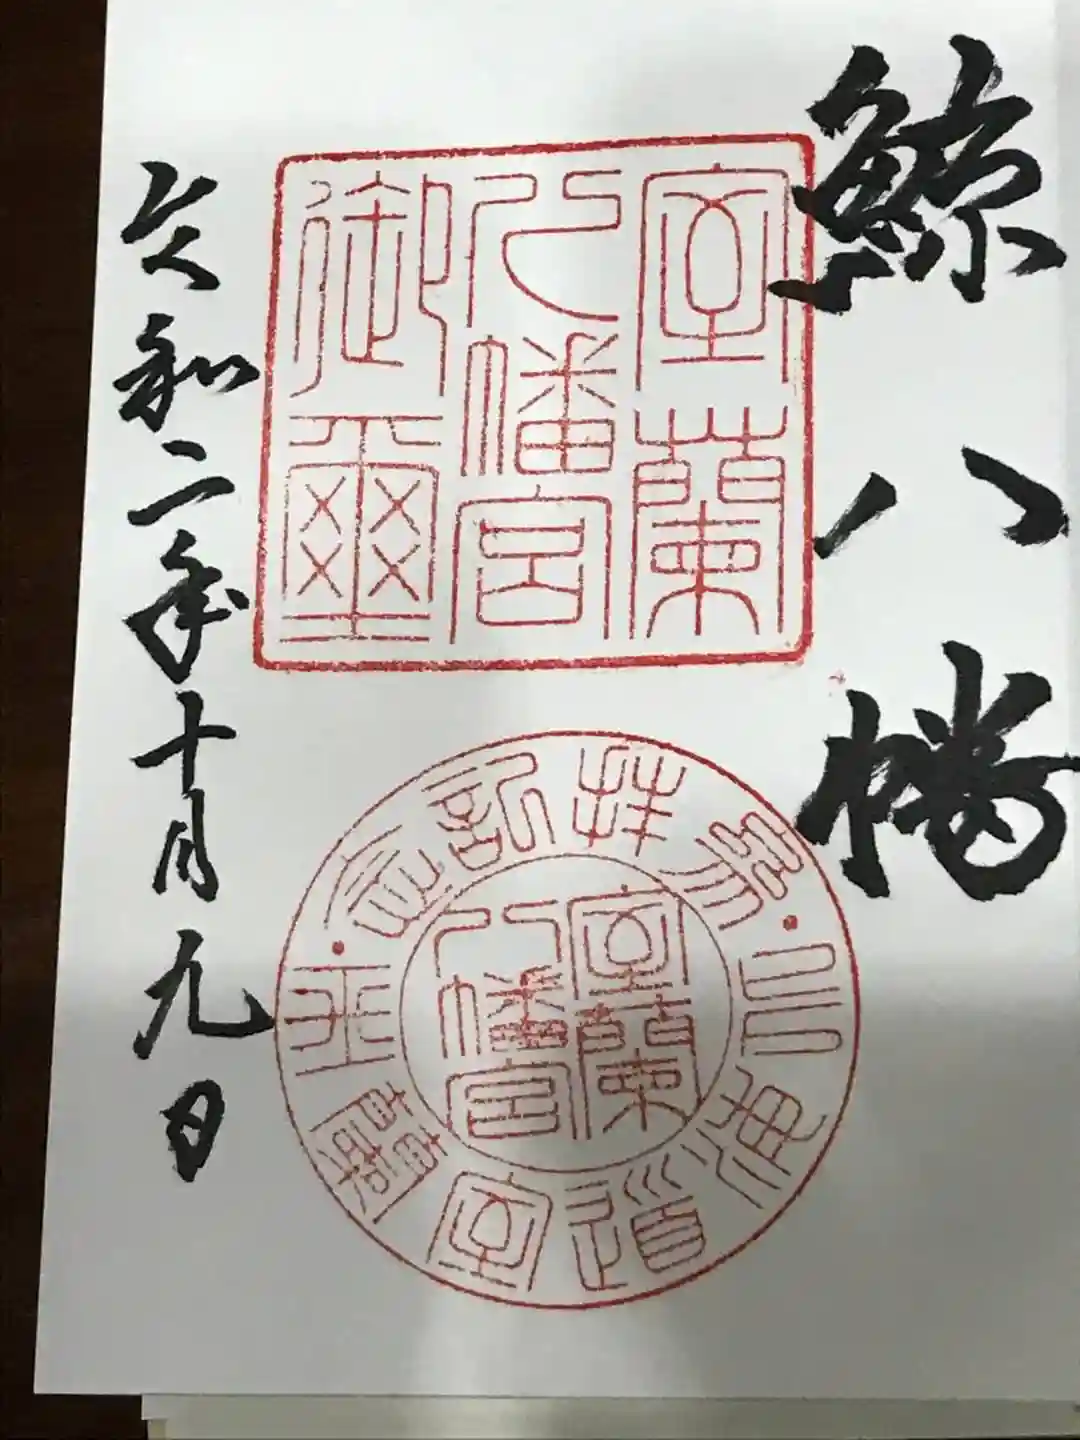 鯨八幡
室蘭
八幡宮
御璽
参拝記念
北海道室蘭市
室蘭
八幡宮
令和二年十月九日